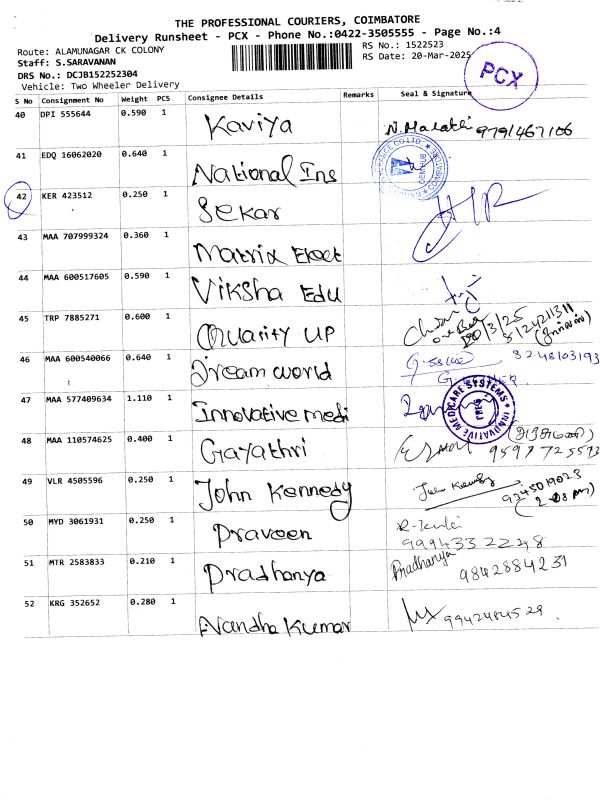 THE PROFESSIONAL COURIERS, COIMBATORE
Delivery Runsheet - PCX - Phone No.:0422-3505555 - Page No.:4
Route: ALAMUNAGAR CK COLONY
RS No.: 1522523
Staff: S.SARAVANAN
RS Date: 20-Mar-2025
DRS No.: DCJB152252304
Vehicle: Two Wheeler Delivery
PCX
S No Consignment No Weight PCS Consignee Details Remarks Seal & Signature
40 DPI 555644 0.590 1 Kaviya N. Malathi 9791467106
41 EDQ 16062020 0.640 1 National Ins
42 KER 423512 0.250 1 Sekar
43 MAA 707999324 0.360 1 Matrix Elect
44 MAA 600517605 0.590 1 Viksha Edu
45 TRP 7885271 0.600 1 Quarity UP
46 MAA 600540066 0.640 1 Dream world 8248103193
47 MAA 577409634 1.110 1 Innovative medi
INNOVATIVE MEDICARE SYSTEMS
48 MAA 110574625 0.400 1 Gayathri
49 VLR 4505596 0.250 1 John Kennedy John Kennedy 9245019023
50 MYD 3061931 0.250 1 Praveen
9994332248
51 MTR 2583833 0.210 1 Pradhanya Pradhanya 9842884231
52 KRG 352652 0.280 1 Nandha Kumar 9942484529